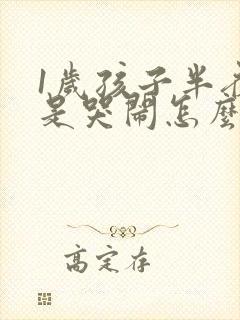 1歲孩子半夜
是哭鬧怎麼
高定存